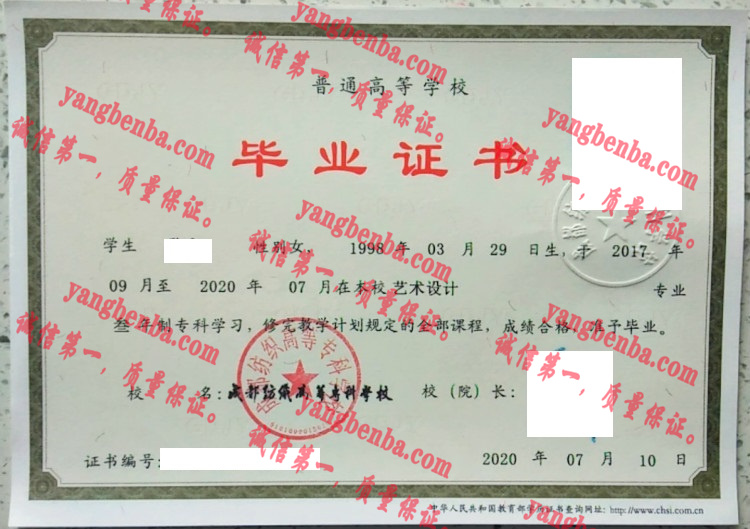 普通高等学校
毕业证书
学生 性别女，1998 年 03 月 29 日生，于 2017 年
09 月至 2020 年 07 月在本校 艺术设计 专业
叁 年制专科学习，修完教学计划规定的全部课程，成绩合格，准予毕业。
校 名：成都纺织高等专科学校 校（院）长：
证书编号： 2020 年 07 月 10 日
中华人民共和国教育部学历证书查询网址：http://www.chsi.com.cn
成都纺织高等专科学校
yangbenba.com
诚信第一，质量保证。
yangbenba.com
诚信第一，质量保证。
yangbenba.com
诚信第一，质量保证。
yangbenba.com
诚信第一，质量保证。
yangbenba.com
诚信第一，质量保证。
yangbenba.com
诚信第一，质量保证。
yangbenba.com
诚信第一，质量保证。
yangbenba.com
诚信第一，质量保证。